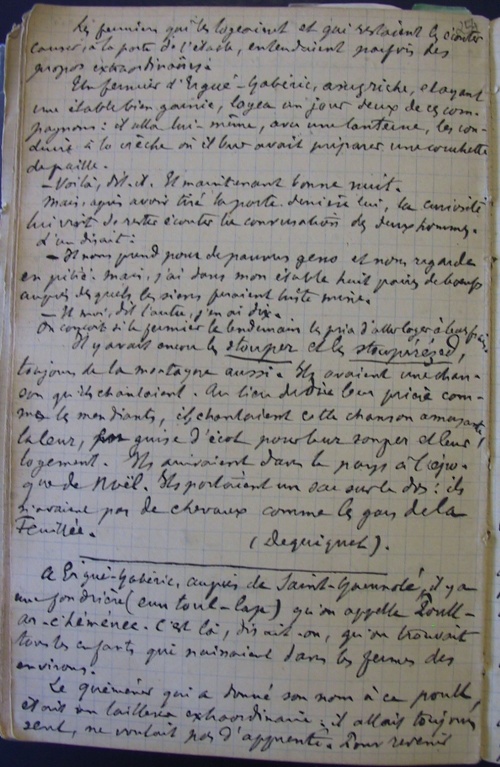 Les fermiers qui les logeaient et qui restaient les écouter
causer, à la porte de l'étable, entendaient parfois des
propos extraordinaires.
Un fermier d'Ergué-Gabéric, assez riche, et ayant
une étable bien garnie, logea un jour deux de ces com-
pagnons : il alla lui-même, avec une lanterne, les con-
duire à la crèche où il leur avait préparer une couchette
de paille.
— Voilà, dit-il. Et maintenant bonne nuit.
Mais, après avoir tiré la porte derrière lui, la curiosité
lui vint de rester écouter la conversation des deux hommes.
L'un disait :
— Il nous prend pour de pauvres gens et nous regarde
en pitié. Mais, j'ai dans mon étable huit paires de bœufs
auprès desquels les siens feraient triste mine.
— Et moi, dit l'autre, j'en ai dix.
On conçoit si le fermier le lendemain les pria d'aller loger à leurs frais.
Il y avait encore les stouper et les stoupérézed,
toujours de la montagne aussi. Ils avaient une chan-
son qu'ils chantaient. Au lieu de dire leur prière com-
me les mendiants, ils chantaient cette chanson amusante,
la leur, en guise d'écot pour leur souper et leur
logement. Ils arrivaient dans le pays à l'épo-
que de Noël. Ils portaient un sac sur le dos : ils
n'avaient pas de chevaux comme les gars de la
Feuillée.
(Déguignet).
A Ergué-Gabéric, auprès de Saint-Guennolé, il y a
une fondrière (eun toul-lap) qu'on appelle Poull-
ar-c'héménér. C'est là, disait-on, qu'on trouvait
tous les enfants qui naissaient dans les fermes des
environs.
Le quéménér qui a donné son nom à ce poull,
était un tailleur extraordinaire : il allait toujours
seul, ne voulait pas d'apprenti. Pour revenir